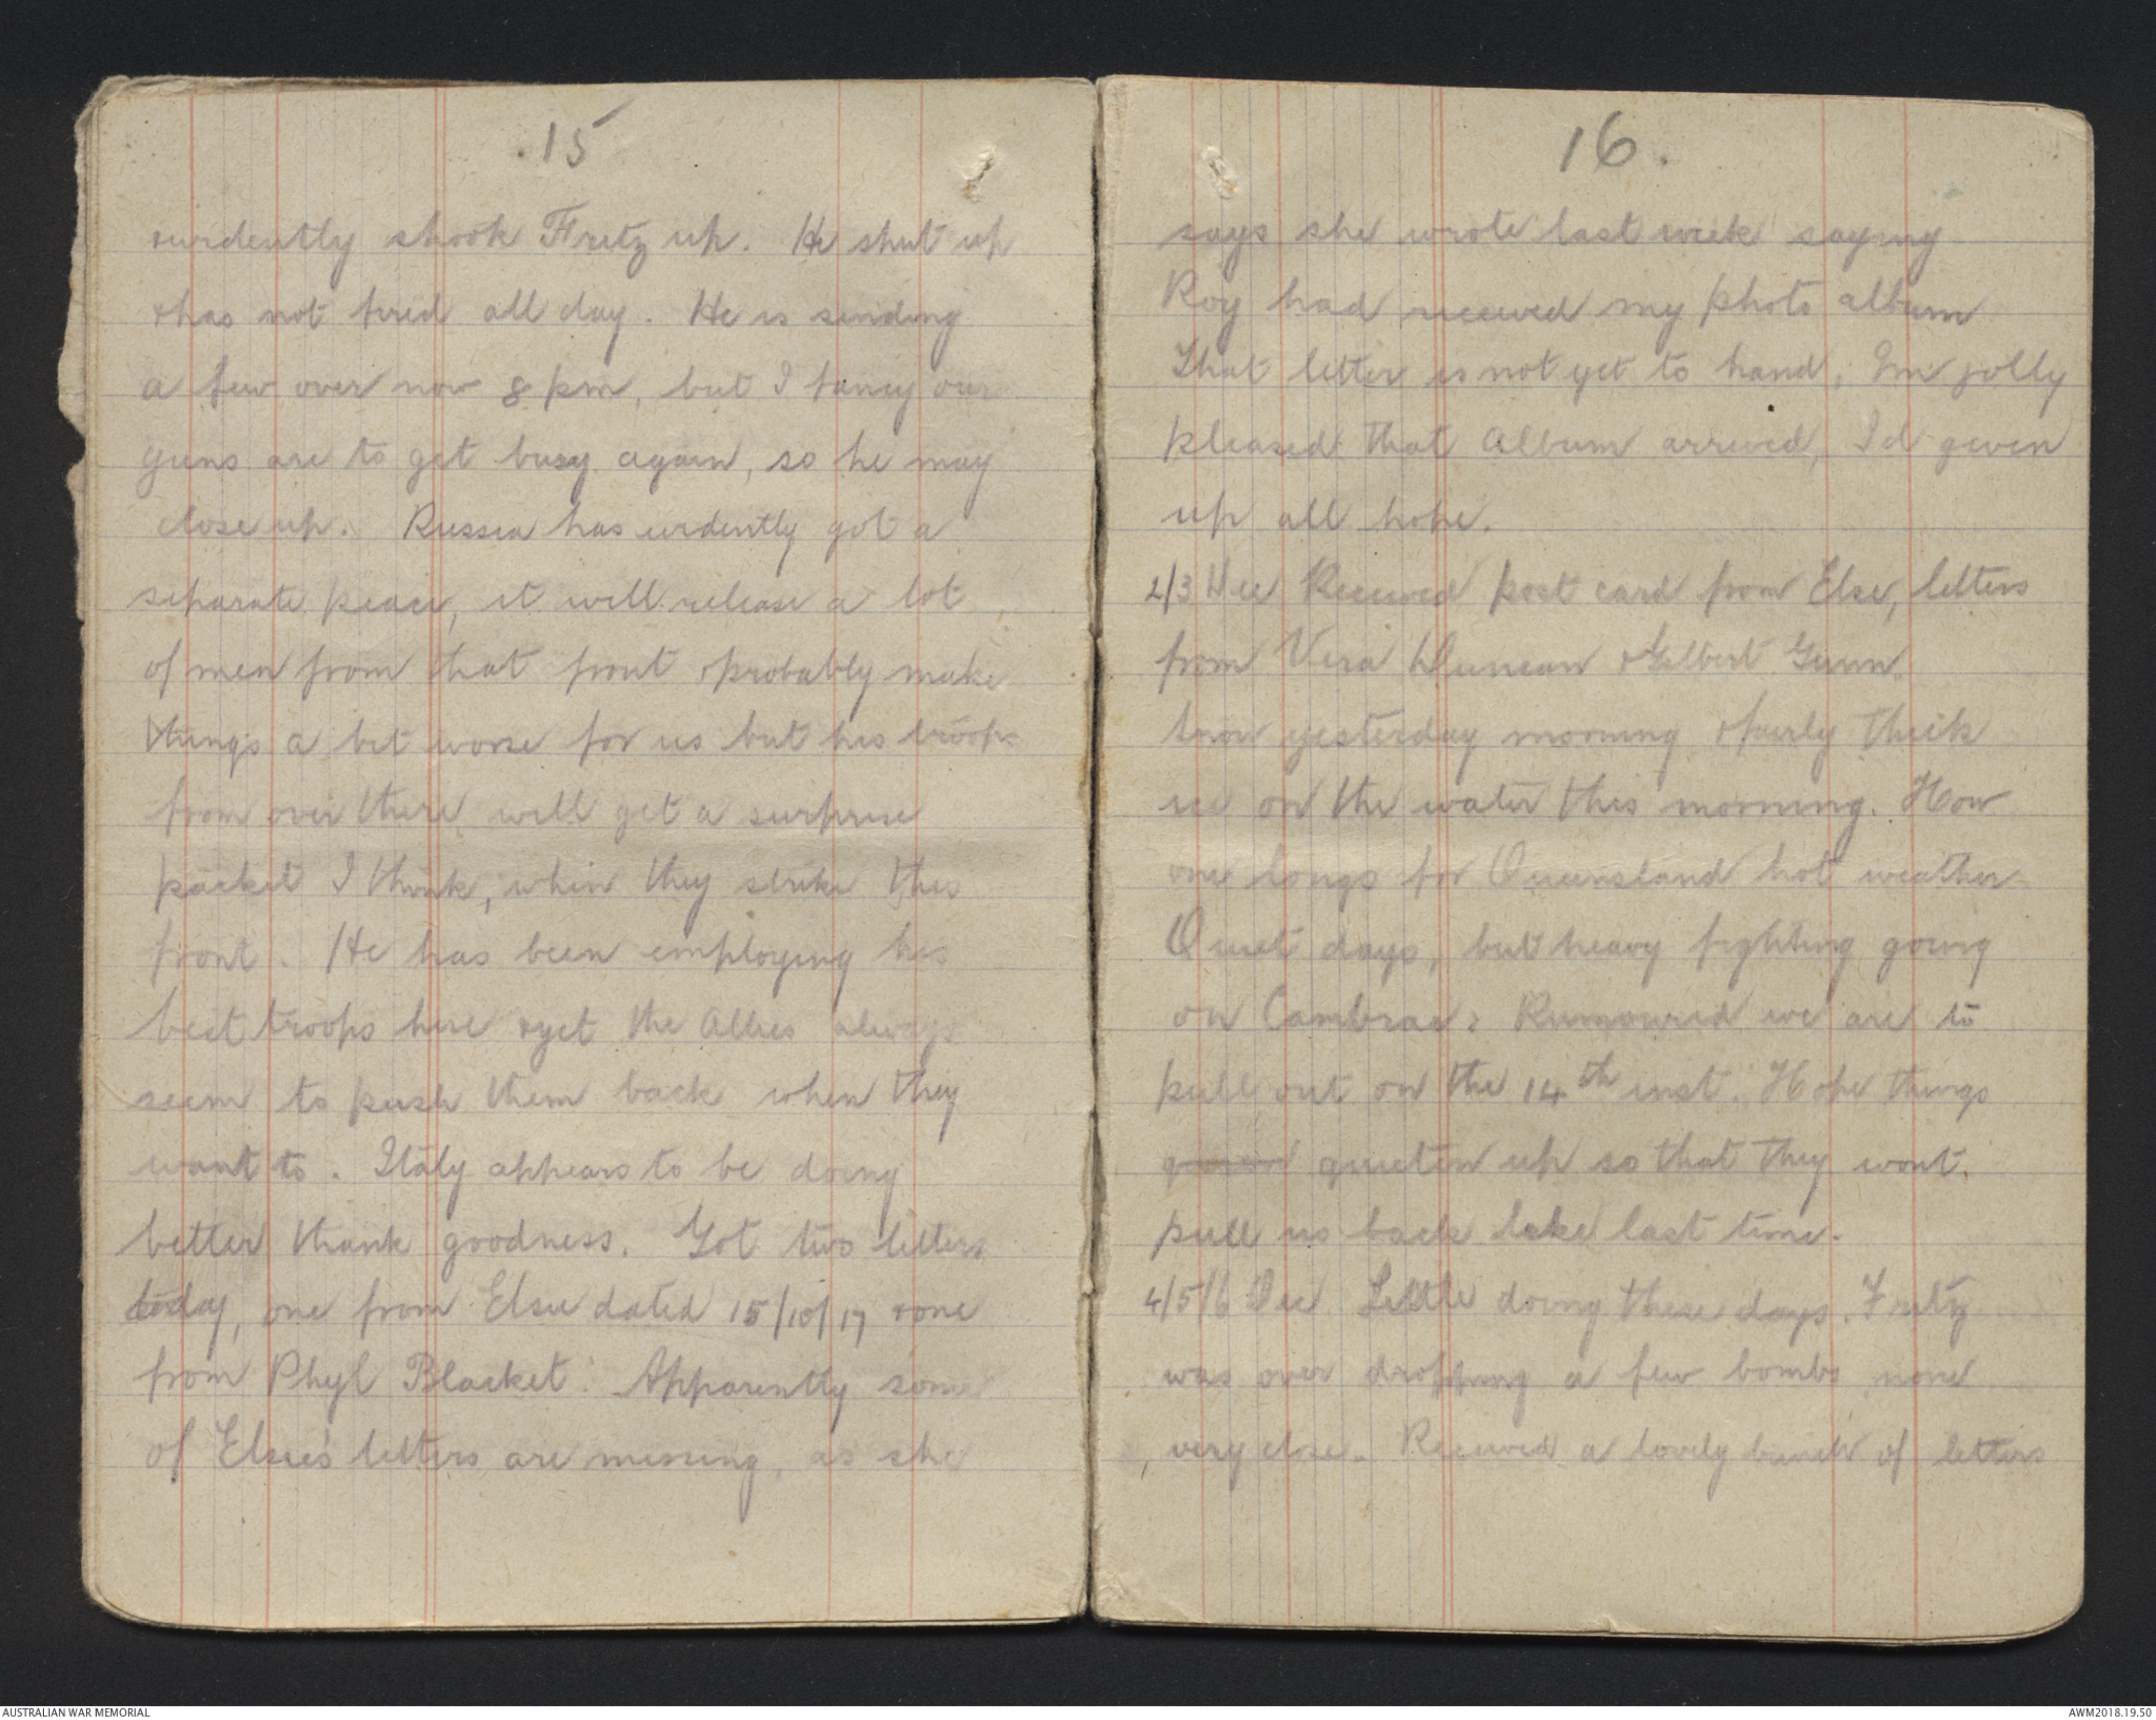 15
evidently shook Fritz up. He shut up
& has not fired all day. He is sending
a few over now 8 pm, but I fancy our
guns are to get busy again, so he may
close up. Russia has evidently got a
separate peace, it will release a lot
of men from that front & probably make
things a bit worse for us but his troops
from over there will get a surprise
packet I think, when they strike this
front. He has been employing his
best troops here & yet the Allies always
seem to push them back when they
want to. Italy appears to be doing
better thank goodness. Got two letters
today, one from Elsie dated 15/10/17 & one
from Phyl Blacket. Apparently some
of Elsie's letters are missing, as she
16.
says she wrote last week saying
Roy had received my photo album
That letter is not yet to hand, I'm jolly
pleased that album arrived, I'd given
up all hope.
2/3 Dec Received post card from Else, letters
from Vera Duncan & Gilbert Gunn.
Snow yesterday morning & fairly thick
ice on the water this morning. How
one longs for Queensland hot weather
Quiet days, but heavy fighting going
on Cambrai. Rumoured we are to
pull out on the 14th inst. Hope things
quieten up so that they wont.
pull us back like last time.
4/5/6 Dec Little doing these days. Fritz
was over dropping a few bombs none
very close. Received a lovely bunch of letters
AUSTRALIAN WAR MEMORIAL
AWM2018.19.50